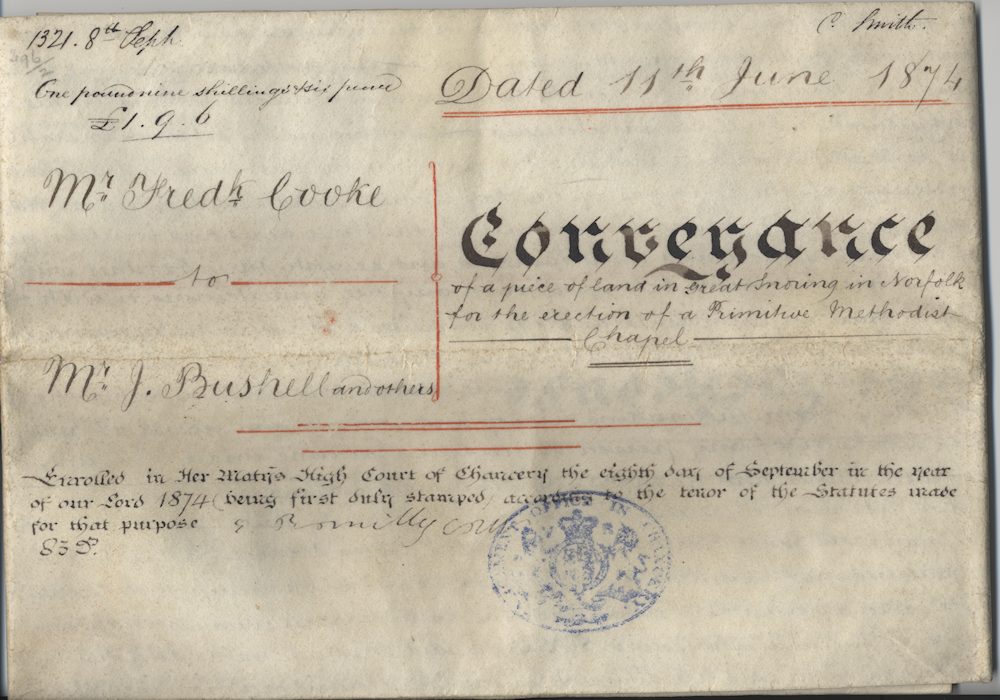 1321. 8th Septr
C. Smith.
One pound nine shillings & six pence
£1. 9. 6
Dated 11th June 1874
Mr. Fredk. Cooke
to
Mr. J. Bushell and others
Conveyance
of a piece of land in Great Snoring in Norfolk
for the erection of a Primitive Methodist
Chapel
Enrolled in Her Matys High Court of Chancery the eighth day of September in the year
of our Lord 1874 (being first duly stamped) according to the tenor of the Statutes made
for that purpose